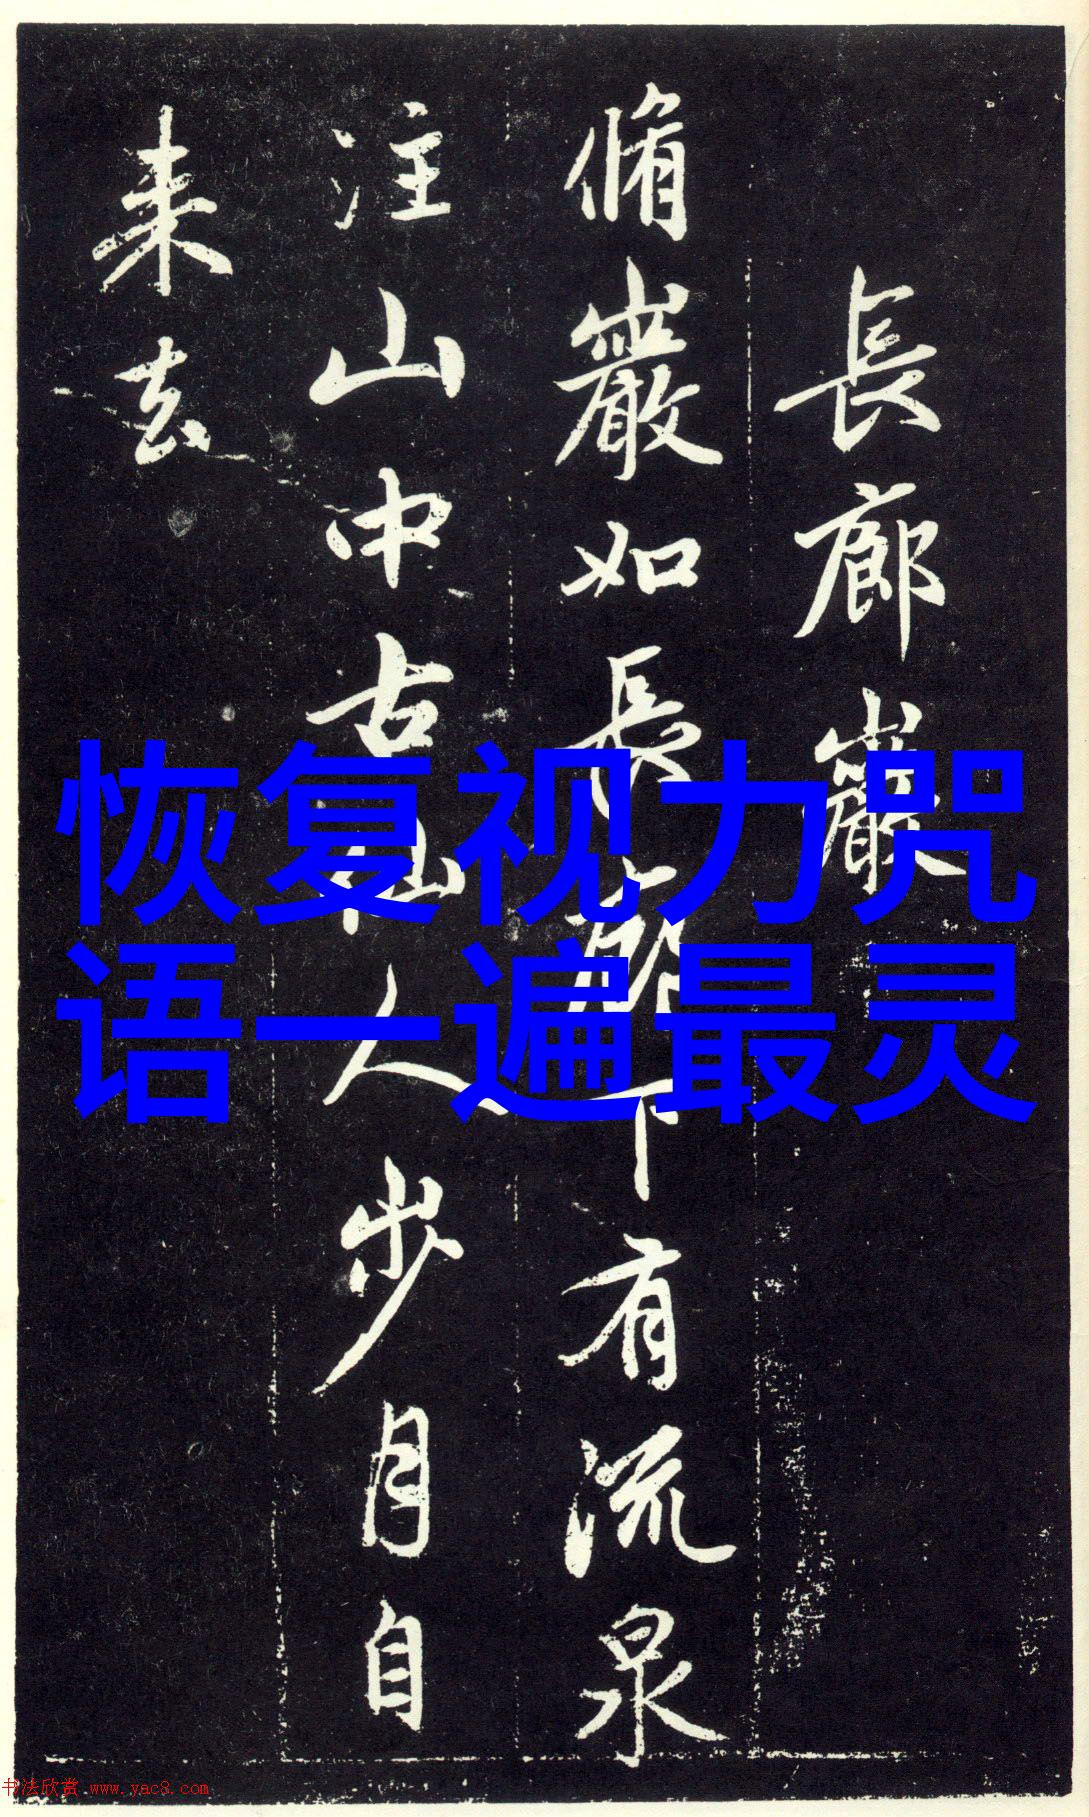 長廊巖
脩巖如長廊下有流泉
注山中古仙人步月自
来去
恢复视力咒
语一遍最灵
书法欣赏 www.yac8.com